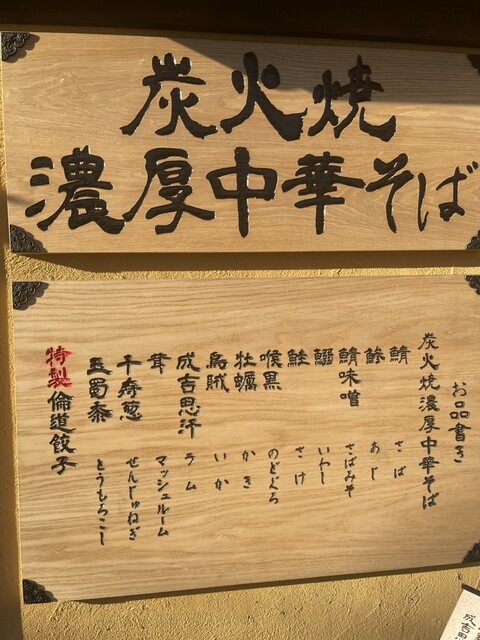 炭火焼
濃厚中華そば
お品書き
炭火焼濃厚中華そば
鯖 さば
鯵 あじ
鯖味噌 さばみそ
鰯 いわし
鮭 さけ
喉黒 のどぐろ
牡蠣 かき
烏賊 いか
成吉思汗 ラム
茸 マッシュルーム
千寿葱 せんじゅねぎ
玉蜀黍 とうもろこし
特製倫道餃子